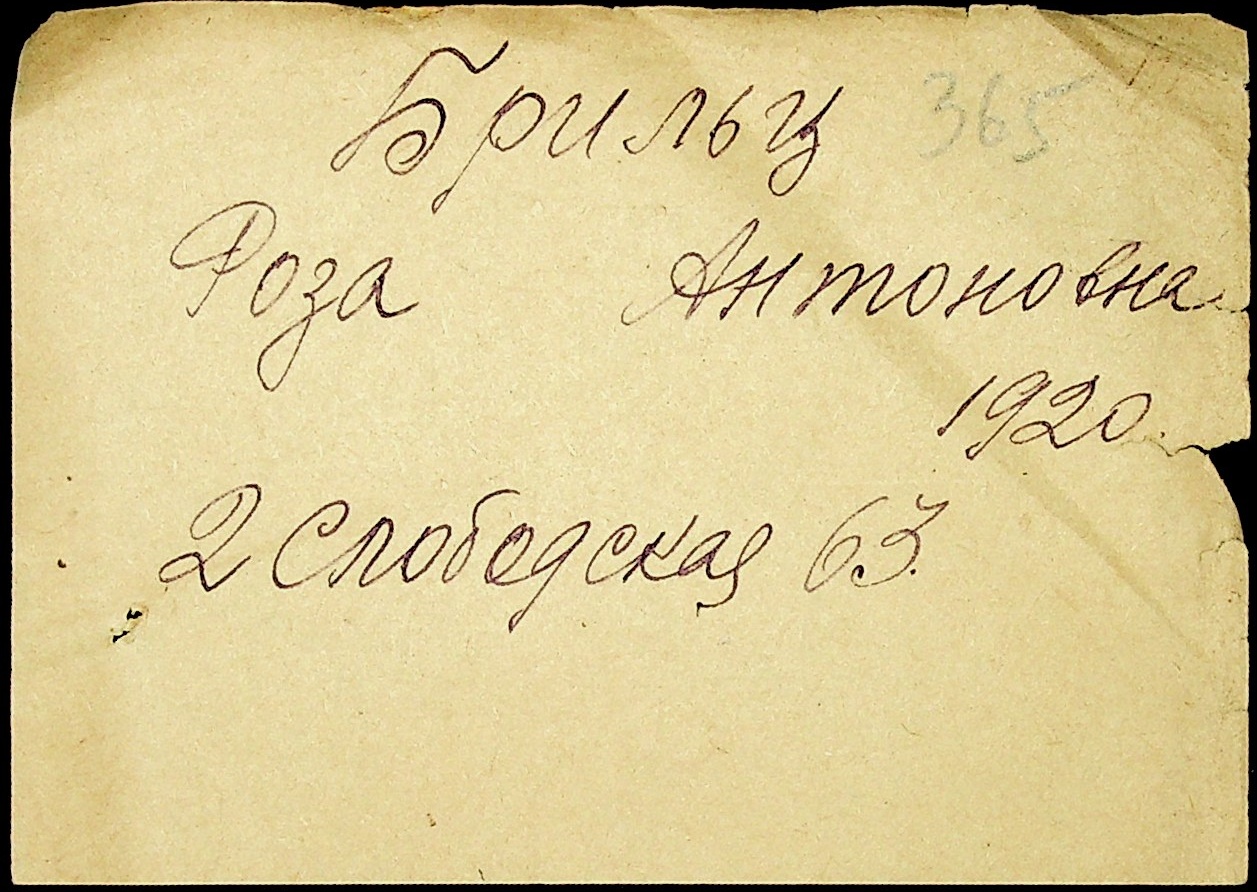 Брильц 365
Роза Антоновна
1920
2 Слободская 63.